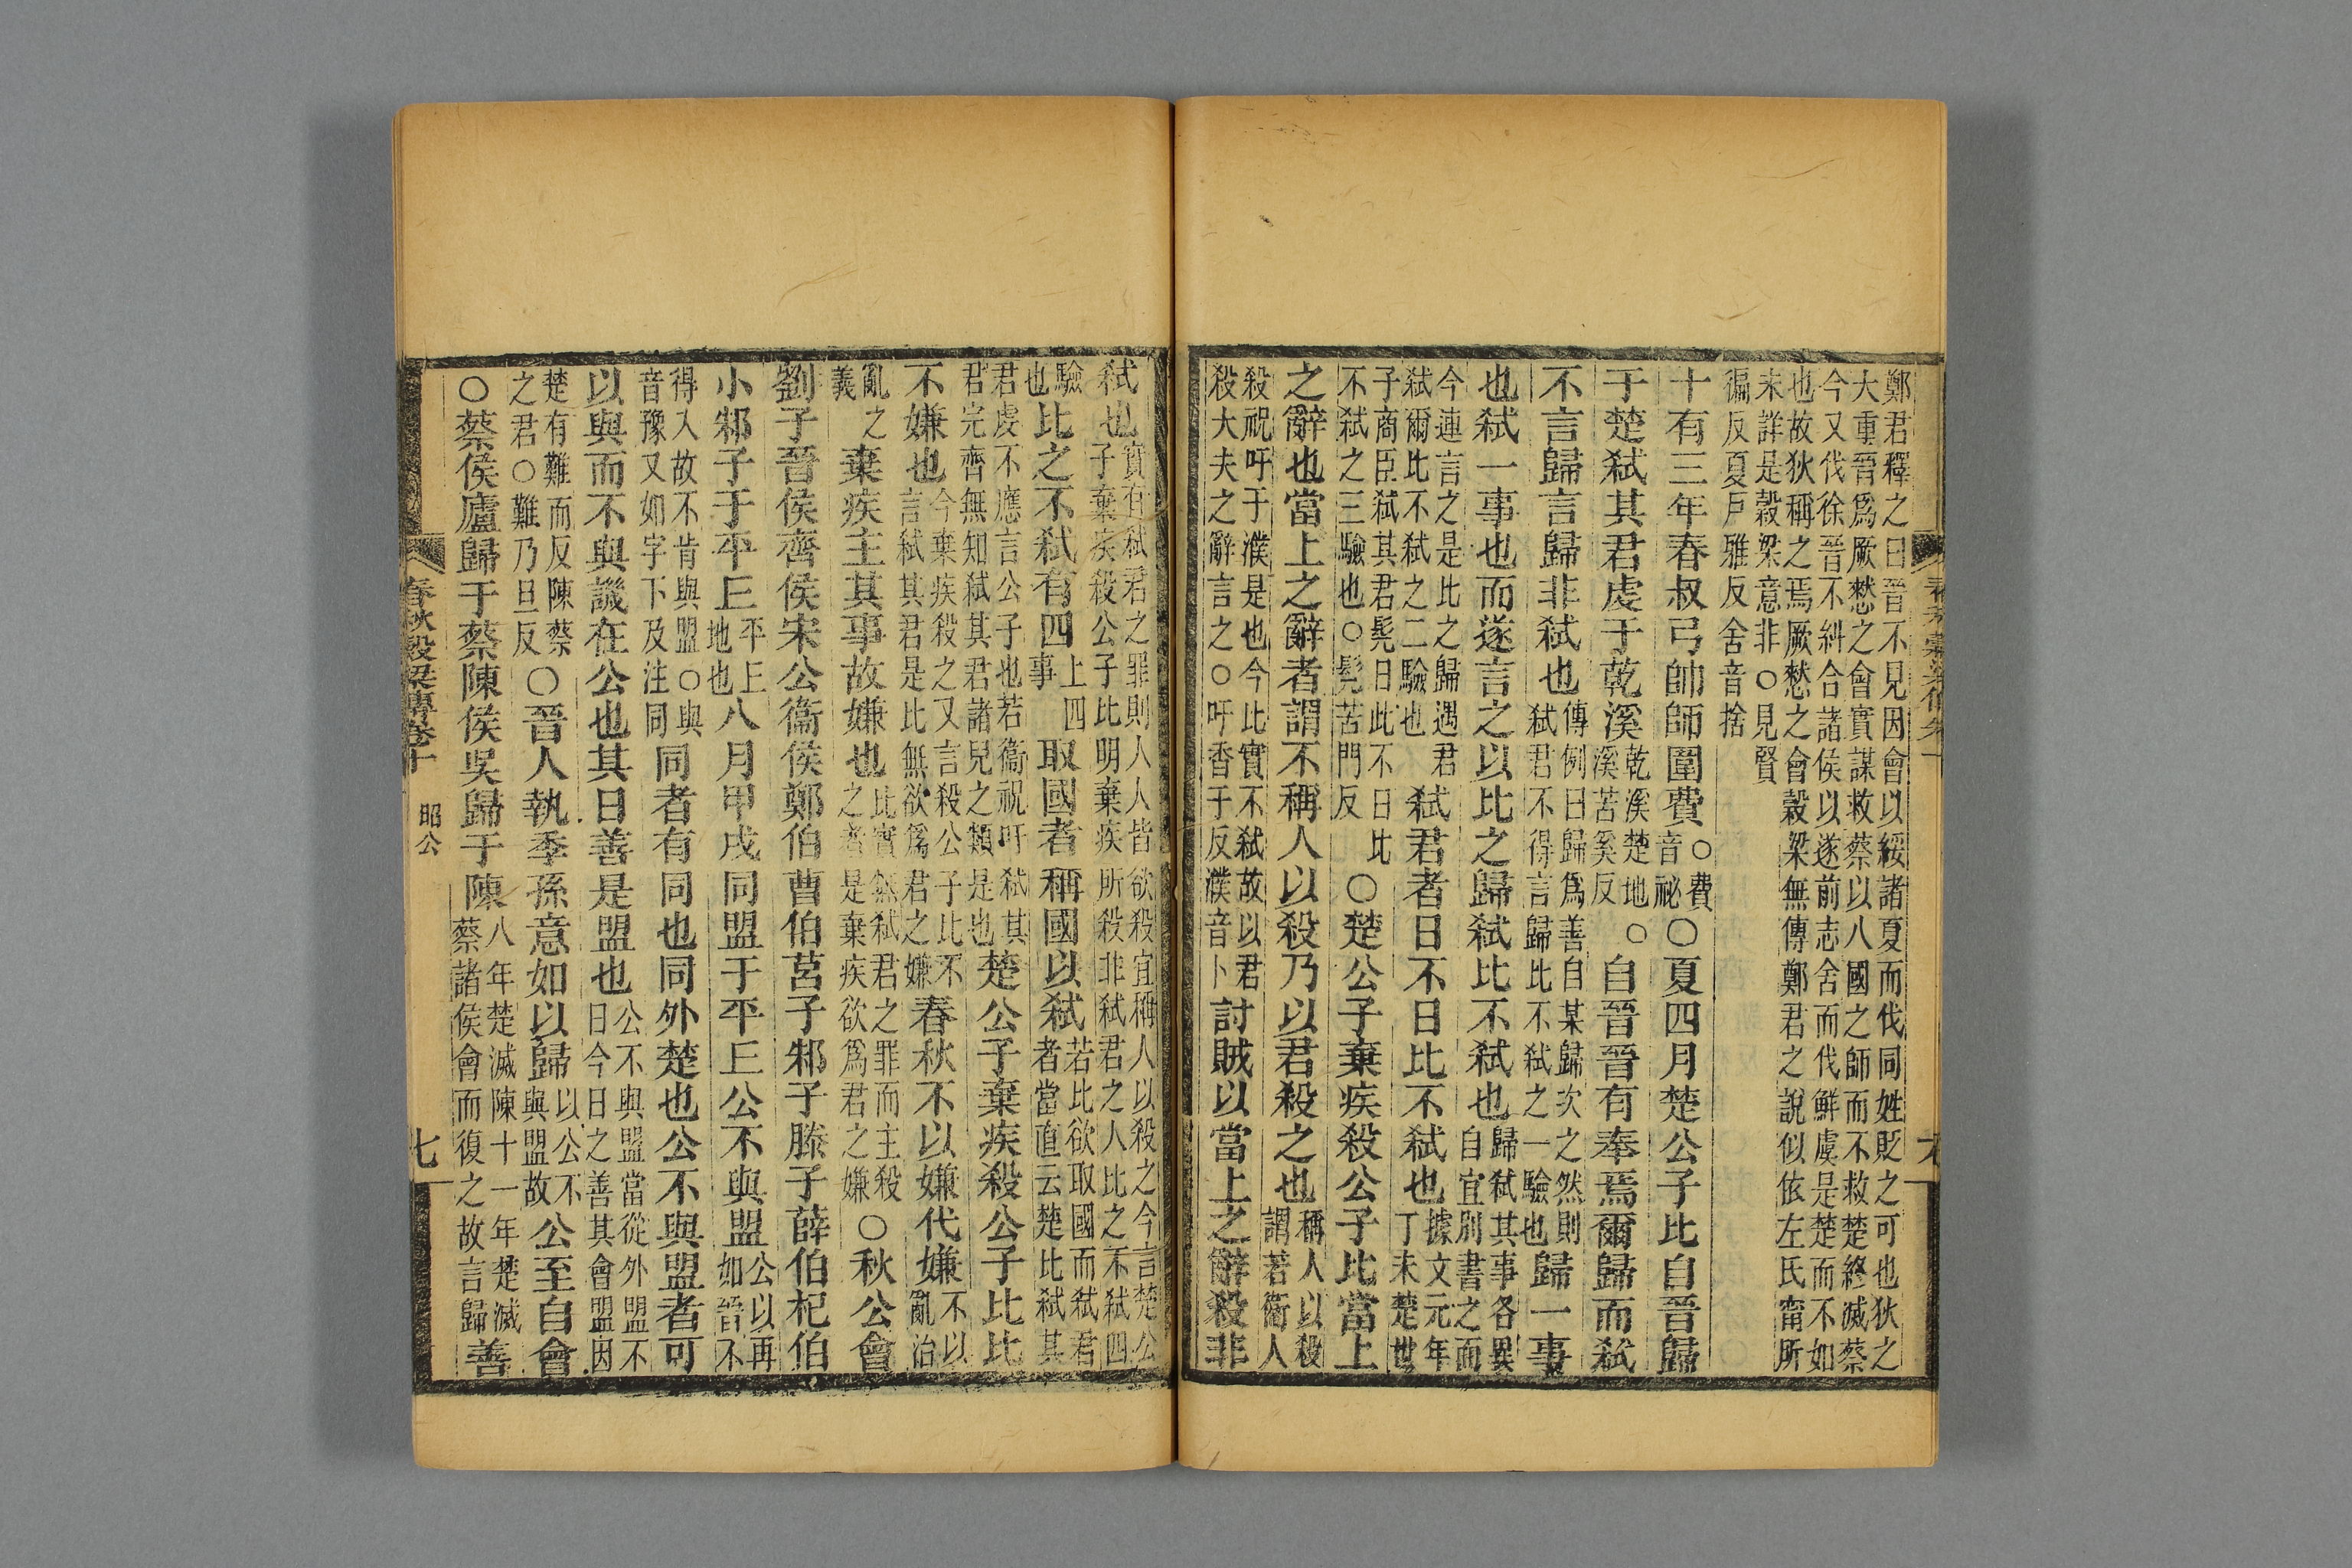 鄭君釋之曰晉不見因會以綏諸夏而伐同姓貶之可也狄之
大重晉爲厥憖之會實謀救蔡以八國之師而不救楚終滅蔡
今又伐徐晉不糾合諸侯以遂前志舍而伐鮮虞是楚而不如
也故狄稱之焉厥憖之會穀梁無傳鄭君之說似依左氏甯所
未詳是穀梁意非○見賢
徧反夏戸雅反舍音捨
十有三年春叔弓帥師圍費○費音祕○夏四月楚公子比自晉歸
于楚弑其君虔于乾溪乾溪楚地○溪苦奚反自晉晉有奉焉爾歸而弑
不言歸言歸非弑也傳例曰歸爲善自某歸次之然則弑君不得言歸比不弑之一驗也歸一事
也弑一事也而遂言之以比之歸弑比不弑也歸弑其事各異自宜別書之而
今連言之是比之歸遇君弑爾比不弑之二驗也弑君者日不日比不弑也據文元年丁未楚世
子商臣弑其君髡日此不日比不弑之三驗也○髡苦門反○楚公子棄疾殺公子比當上
之辭也當上之辭者謂不稱人以殺乃以君殺之也稱人以殺謂若衞人
殺祝吁于濮是也今比實不弑故以君殺大夫之辭言之○吁香于反濮音卜討賊以當上之辭殺非
弑也實有弑君之罪則人人皆欲殺宜稱人以殺之今言楚公子棄疾殺公子比明棄疾所殺非弑君之人比之不弑四
驗也比之不弑有四上四事取國者稱國以弑若比欲取國而弑君者當直云楚比弑其
君虔不應言公子也若衞祝吁弑其君完齊無知弑其君諸兒之類是也楚公子棄疾殺公子比比
不嫌也今棄疾殺之又言殺公子比不言弑其君是比無欲爲君之嫌春秋不以嫌代嫌不以亂治
亂之義棄疾主其事故嫌也比實無弑君之罪而主殺之者是棄疾欲爲君之嫌○秋公會
劉子晉侯齊侯宋公衞侯鄭伯曹伯莒子邾子滕子薛伯杞伯
小邾子于平丘平丘地也八月甲戌同盟于平丘公不與盟公以再如晉不
得入故不肯與盟○與音豫又如字下及注同同者有同也同外楚也公不與盟者可
以與而不與譏在公也其日善是盟也公不與盟當從外盟不日今日之善其會盟因
楚有難而反陳蔡之君○難乃旦反○晉人執季孫意如以歸以公不與盟故公至自會
○蔡侯廬歸于蔡陳侯吳歸于陳八年楚滅陳十一年楚滅蔡諸侯會而復之故言歸善
春秋穀梁傳卷十 昭公 七